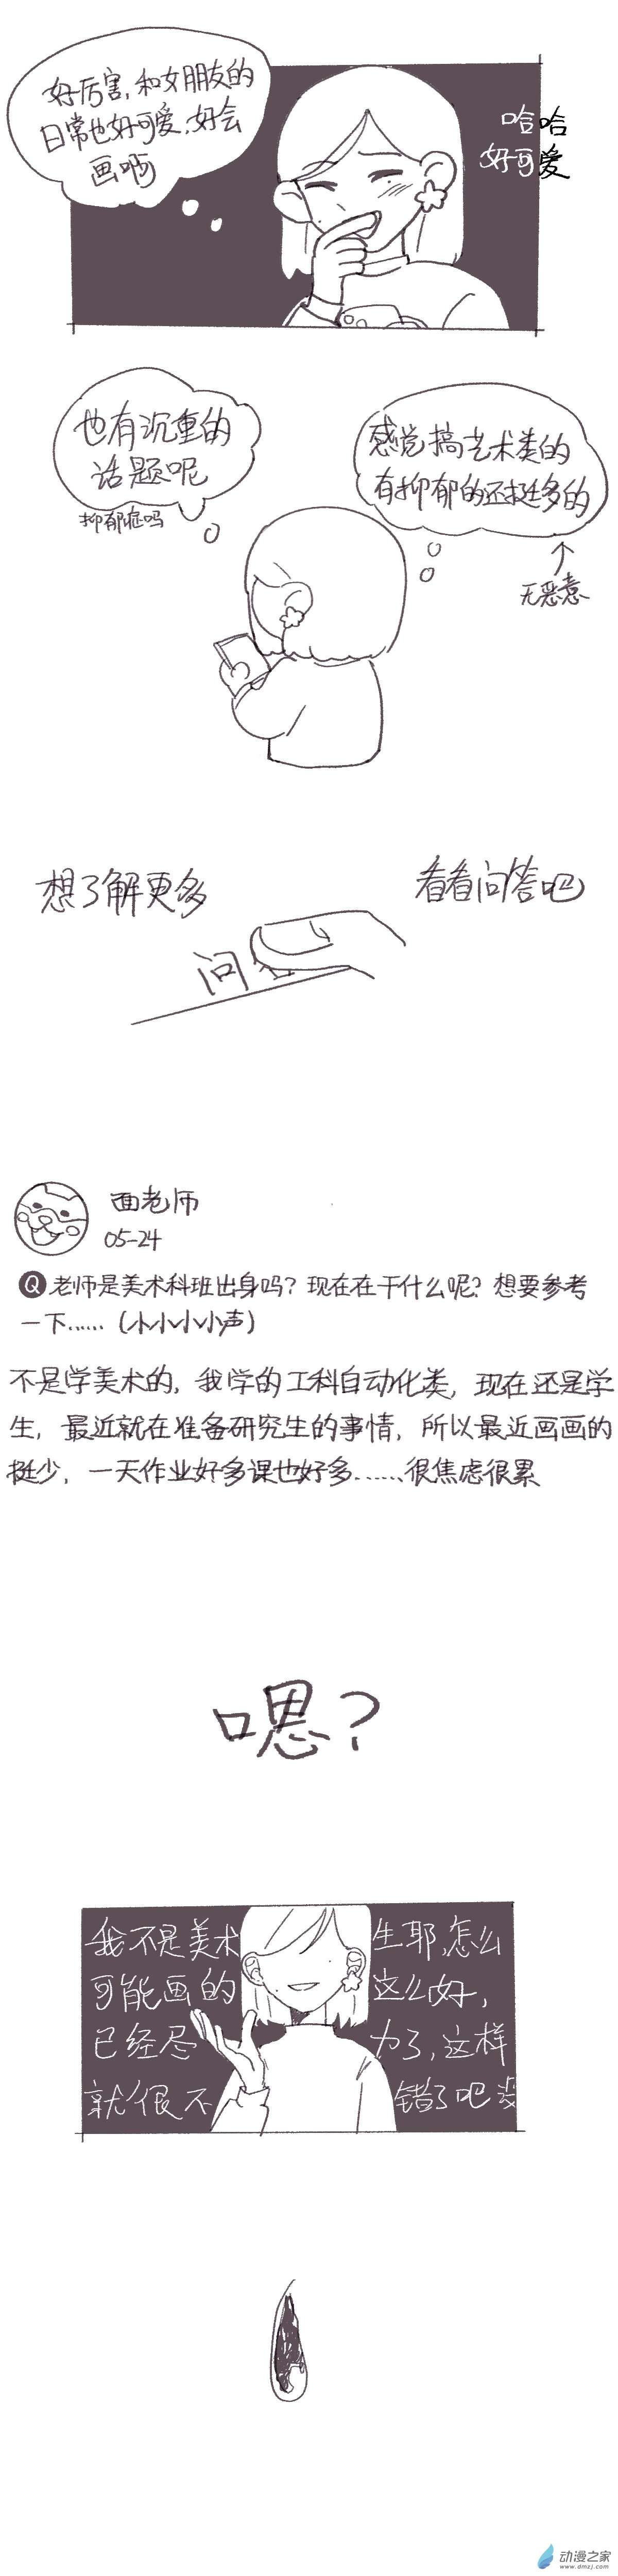 好厉害,和女朋友的
日常也好可爱,好会
画啊
哈哈
好可爱
也有沉重的
话题呢
抑郁症吗
感觉搞艺术类的
有抑郁的还挺多的
无恶意
想了解更多
看看问答吧
问
面老师
05-24
Q 老师是美术科班出身吗？现在在干什么呢？想要参考
一下……（小小小小声）
不是学美术的，我学的工科自动化类，现在还是学
生，最近就在准备研究生的事情，所以最近画画的
挺少，一天作业好多课也好多……很焦虑很累
嗯？
我不是美术生耶,怎么
可能画的这么好,
已经尽力了,这样
就很不错了吧
动漫之家
www.dmzj.com